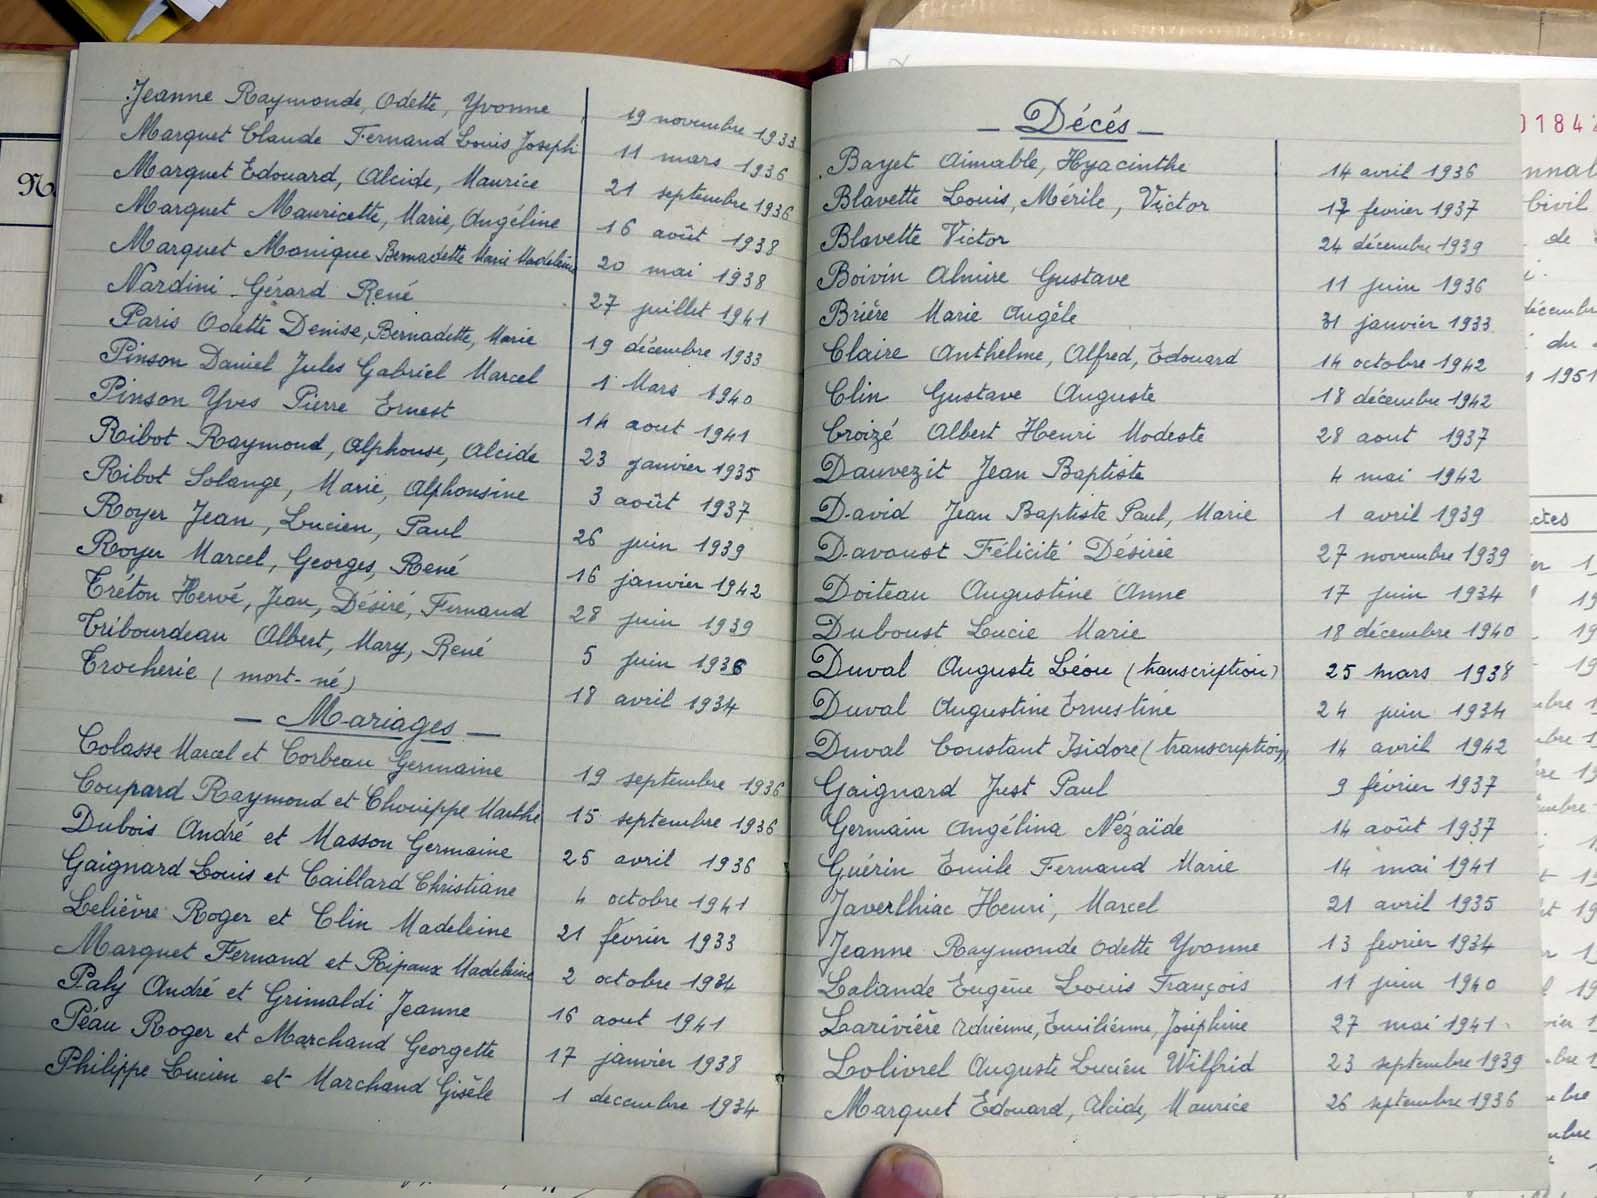 Jeanne Raymonde, Odette, Yvonne 19 novembre 1933
Marquet Claude Fernand Louis Joseph 11 mars 1936
Marquet Edouard, Alcide, Maurice 21 septembre 1936
Marquet Mauricette, Marie, Angéline 16 août 1938
Marquet Monique Bernadette Marie Madeleine 20 mai 1938
Nardini Gérard René 27 juillet 1941
Paris Odette Denise, Bernadette, Marie 19 décembre 1933
Pinson Daniel Jules Gabriel Marcel 1 Mars 1940
Pinson Yves Pierre Ernest 14 aout 1941
Ribot Raymond, Alphonse, Alcide 23 janvier 1935
Ribot Solange, Marie, Alphonsine 3 août 1937
Royer Jean, Lucien, Paul 26 juin 1939
Royer Marcel, Georges, René 16 janvier 1942
Tréton Hervé, Jean, Désiré, Fernand 28 juin 1939
Tribourdeau Albert, Mary, René 5 juin 1936
Trocherie (mort-né) 18 avril 1934
- Mariages -
Colasse Marcel et Corbeau Germaine 19 septembre 1936
Coupard Raymond et Chouippe Marthe 15 septembre 1936
Dubois André et Masson Germaine 25 avril 1936
Gaignard Louis et Caillard Christiane 4 octobre 1941
Lelièvre Roger et Clin Madeleine 21 février 1933
Marquet Fernand et Ripaux Madeleine 2 octobre 1934
Paly André et Grimaldi Jeanne 16 aout 1941
Péau Roger et Marchand Georgette 17 janvier 1938
Philippe Lucien et Marchand Gisèle 1 decembre 1934
- Décés -
Bayet Aimable, Hyacinthe 14 avril 1936
Blavette Louis, Mérile, Victor 17 fevrier 1937
Blavette Victor 24 décembre 1939
Boivin Almire Gustave 11 juin 1936
Brière Marie Angèle 31 janvier 1933
Claire Anthelme, Alfred, Edouard 14 octobre 1942
Clin Gustave Auguste 18 décembre 1942
Croizé Albert Henri Modeste 28 aout 1937
Dauvezit Jean Baptiste 4 mai 1942
David Jean Baptiste Paul, Marie 1 avril 1939
Davoust Félicité Désirée 27 novembre 1939
Doiteau Augustine Anne 17 juin 1934
Duboust Lucie Marie 18 décembre 1940
Duval Auguste Léon (transcription) 25 mars 1938
Duval Augustine Ernestine 24 juin 1934
Duval Constant Isidore (transcription) 14 avril 1942
Gaignard Just Paul 9 février 1937
Germain Angélina Nézaïde 14 août 1937
Guérin Emile Fernand Marie 14 mai 1941
Javerlhiac Henri, Marcel 21 avril 1935
Jeanne Raymonde Odette Yvonne 13 fevrier 1934
Lalande Eugène Louis François 11 juin 1940
Larivière Adrienne, Emilienne, Joséphine 27 mai 1941
Lolivrel Auguste Lucien Wilfrid 23 septembre 1939
Marquet Edouard, Alcide, Maurice 26 septembre 1936